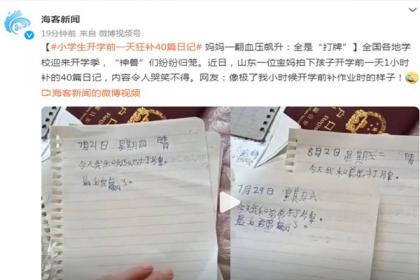 海客新闻
19分钟前 来自 微博视频号
【#小学生开学前一天狂补40篇日记# 妈妈一翻血压飙升：全是“打牌”】全国各地学
校迎来开学季，“神兽”们纷纷归笼。近日，山东一位宝妈拍下孩子开学前一天1小时
补的40篇日记，内容令人哭笑不得。网友：像极了我小时候开学前补作业时的样子！
海客新闻的微博视频
7月21日 星期四 晴
今天我和
打牌。
8月2日 星期二 晴
今天我和
打牌。
7月29日 星期五
今天我和
打牌。